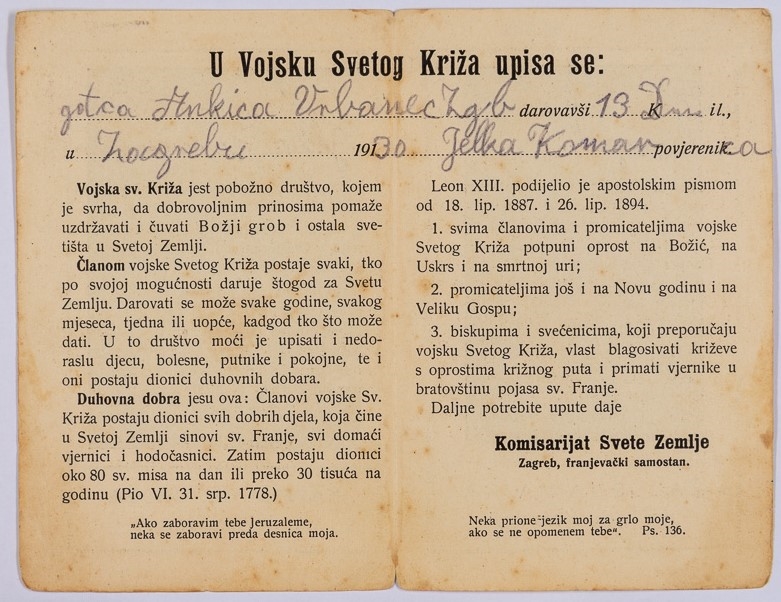 U Vojsku Svetog Križa upisa se:
gđca Ankica Urbanec Zgb darovavši 13 K Din il.,
u Zagrebu 19130 Jelka Koman povjerenik.ca
Vojska sv. Križa jest pobožno društvo, kojem
je svrha, da dobrovoljnim prinosima pomaže
uzdržavati i čuvati Božji grob i ostala sve-
tišta u Svetoj Zemlji.
Članom vojske Svetog Križa postaje svaki, tko
po svojoj mogućnosti daruje štogod za Svetu
Zemlju. Darovati se može svake godine, svakog
mjeseca, tjedna ili uopće, kadgod tko što može
dati. U to društvo moći je upisati i nedo-
raslu djecu, bolesne, putnike i pokojne, te i
oni postaju dionici duhovnih dobara.
Duhovna dobra jesu ova: Članovi vojske Sv.
Križa postaju dionici svih dobrih djela, koja čine
u Svetoj Zemlji sinovi sv. Franje, svi domaći
vjernici i hodočasnici. Zatim postaju dionici
oko 80 sv. misa na dan ili preko 30 tisuća na
godinu (Pio VI. 31. srp. 1778.)
„Ako zaboravim tebe Jeruzaleme,
neka se zaboravi preda desnica moja.
Leon XIII. podijelio je apostolskim pismom
od 18. lip. 1887. i 26. lip. 1894.
1. svima članovima i promicateljima vojske
Svetog Križa potpuni oprost na Božić, na
Uskrs i na smrtnoj uri;
2. promicateljima još i na Novu godinu i na
Veliku Gospu;
3. biskupima i svećenicima, koji preporučaju
vojsku Svetog Križa, vlast blagosivati križeve
s oprostima križnog puta i primati vjernike u
bratovštinu pojasa sv. Franje.
Daljne potrebite upute daje
Komisarijat Svete Zemlje
Zagreb, franjevački samostan.
Neka prione jezik moj za grlo moje,
ako se ne opomenem tebe“. Ps. 136.